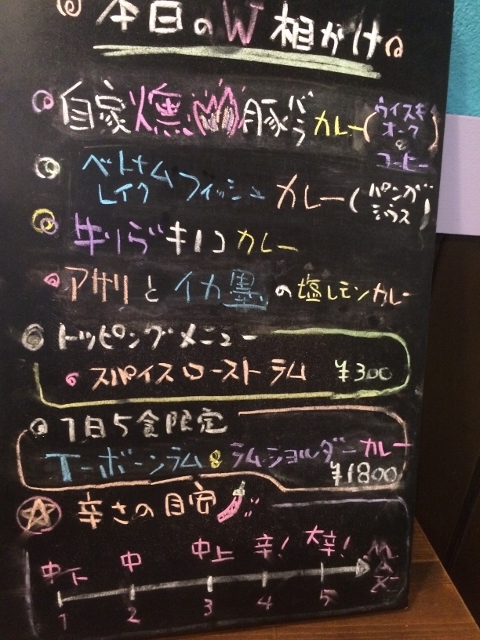 本日のW相がけ
自家燻豚バラカレー(ウイスキーオーク&コーヒー)
ベトナムレイクフィッシュカレー(パンガシウス)
牛すじキノコカレー
アサリとイカ墨の塩レモンカレー
トッピングメニュー
スパイスローストラム ¥300
1日5食限定
Tーボーンラム&ラムショルダーカレー
¥1800
辛さの目安
中下 中 中上 辛! 大辛! MAX
1 2 3 4 5